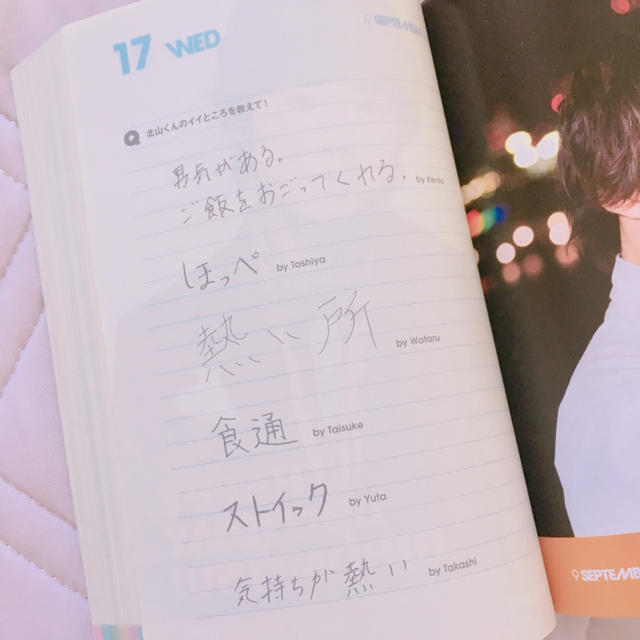 17 WED
9 SEPTEMBE
Q 北山くんのイイところを教えて！
男気がある。
ご飯をおごってくれる。 by Kento
ほっぺ by Toshiya
熱い所 by Wataru
食通 by Taisuke
ストイック by Yuta
気持ちが熱い by Takashi
9 SEPTEMB